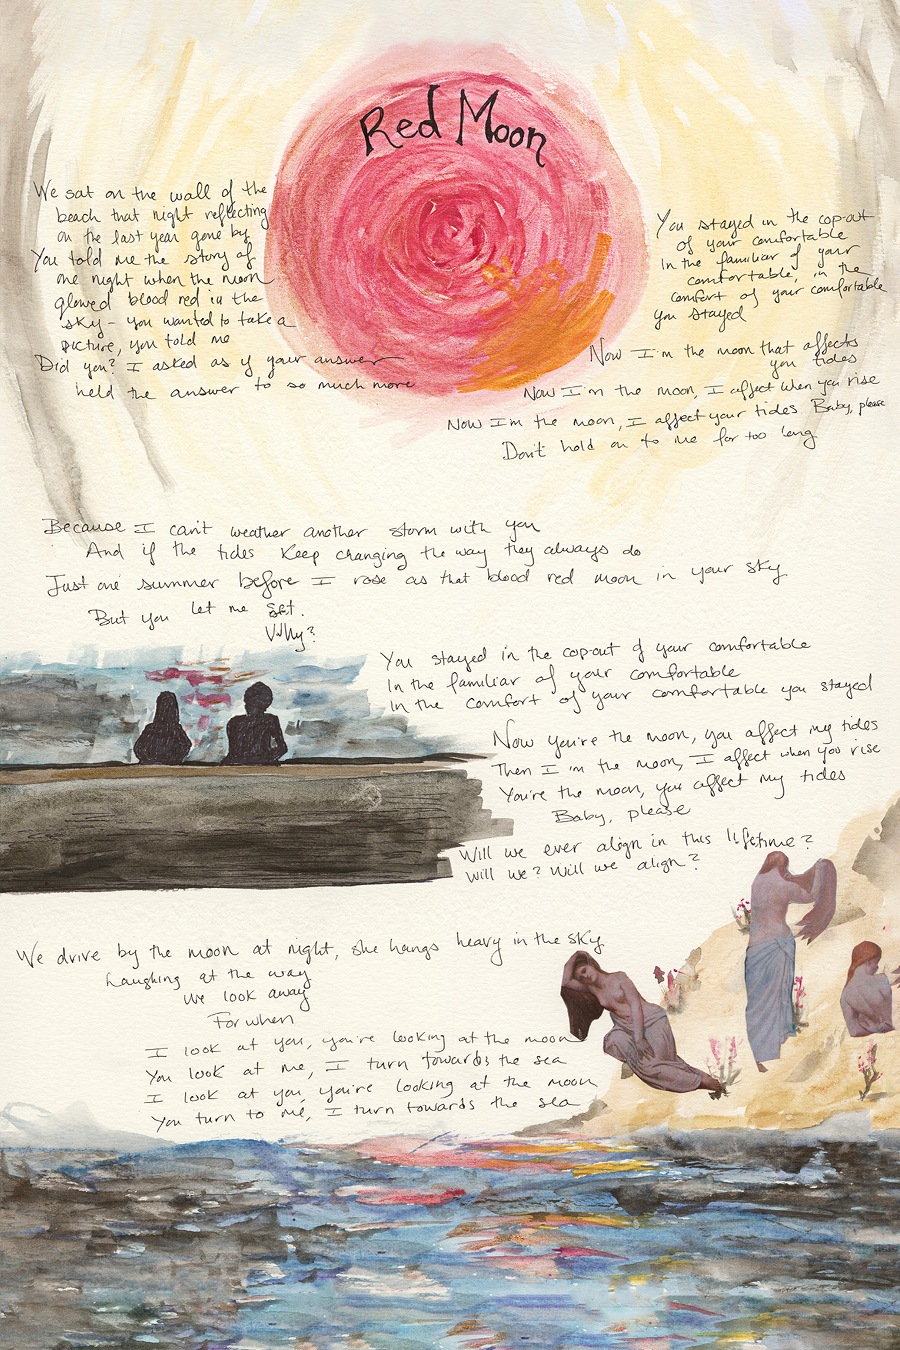 Red Moon
We sat on the wall of the
beach that night reflecting
on the last year gone by
You told me the story of
one night when the moon
glowed blood red in the
sky - you wanted to take a
picture, you told me
Did you? I asked as if your answer
held the answer to so much more
You stayed in the cop-out
of your comfortable
In the familiar of your
comfortable, in the
comfort of your comfortable
you stayed
Now I'm the moon that affects
you tides
Now I'm the moon, I affect when you rise
Now I'm the moon, I affect your tides Baby, please
Don't hold on to me for too long
Because I can't weather another storm with you
And if the tides keep changing the way they always do
Just one summer before I rose as that blood red moon in your sky
But you let me set.
Why?
You stayed in the cop-out of your comfortable
In the familiar of your comfortable
In the comfort of your comfortable you stayed
Now you're the moon, you affect my tides
Then I'm the moon, I affect when you rise
You're the moon, you affect my tides
Baby, please
Will we ever align in this lifetime?
Will we? Will we align?
We drive by the moon at night, she hangs heavy in the sky
Laughing at the way
we look away
For when
I look at you, you're looking at the moon
You look at me, I turn towards the sea
I look at you, you're looking at the moon
You turn to me, I turn towards the sea